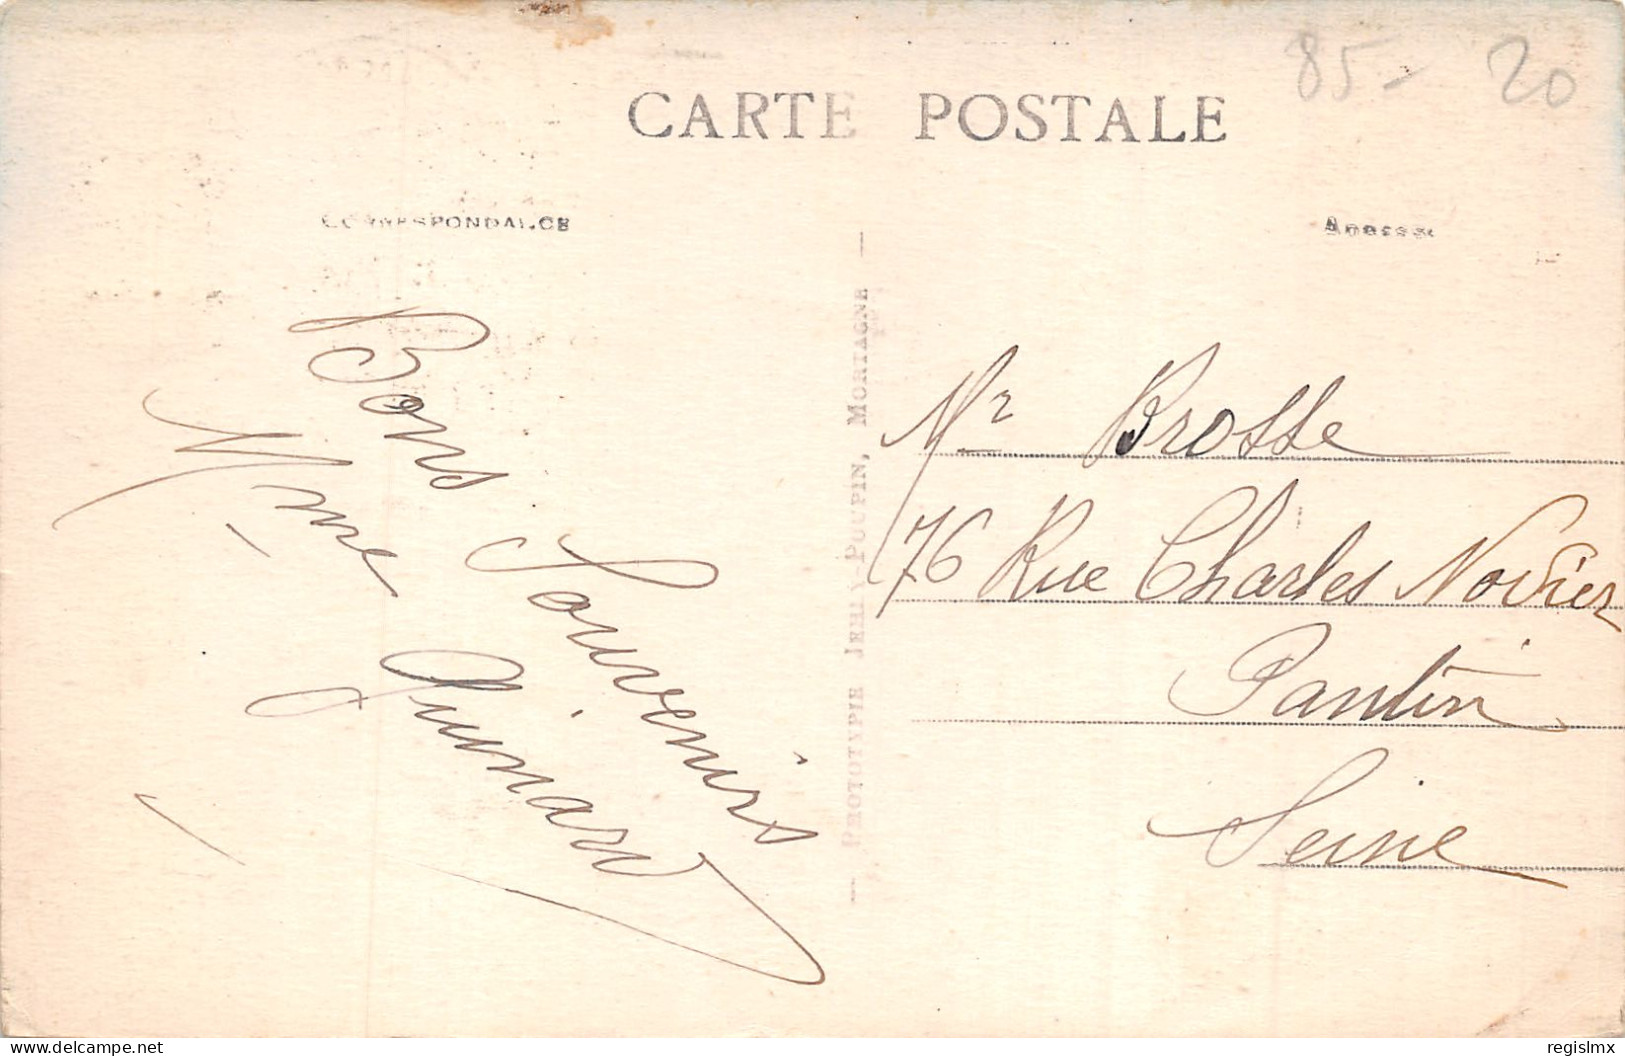 85- 20
CARTE POSTALE
CORRESPONDANCE
ADRESSE
Bons Souvenirs
Mme Guinard
PHOTOTYPIE JEHLY-POUPIN, MORTAGNE
Mr Brosse
76 Rue Charles Nodier
Pantin
Seine
delcampe.net
regislmx